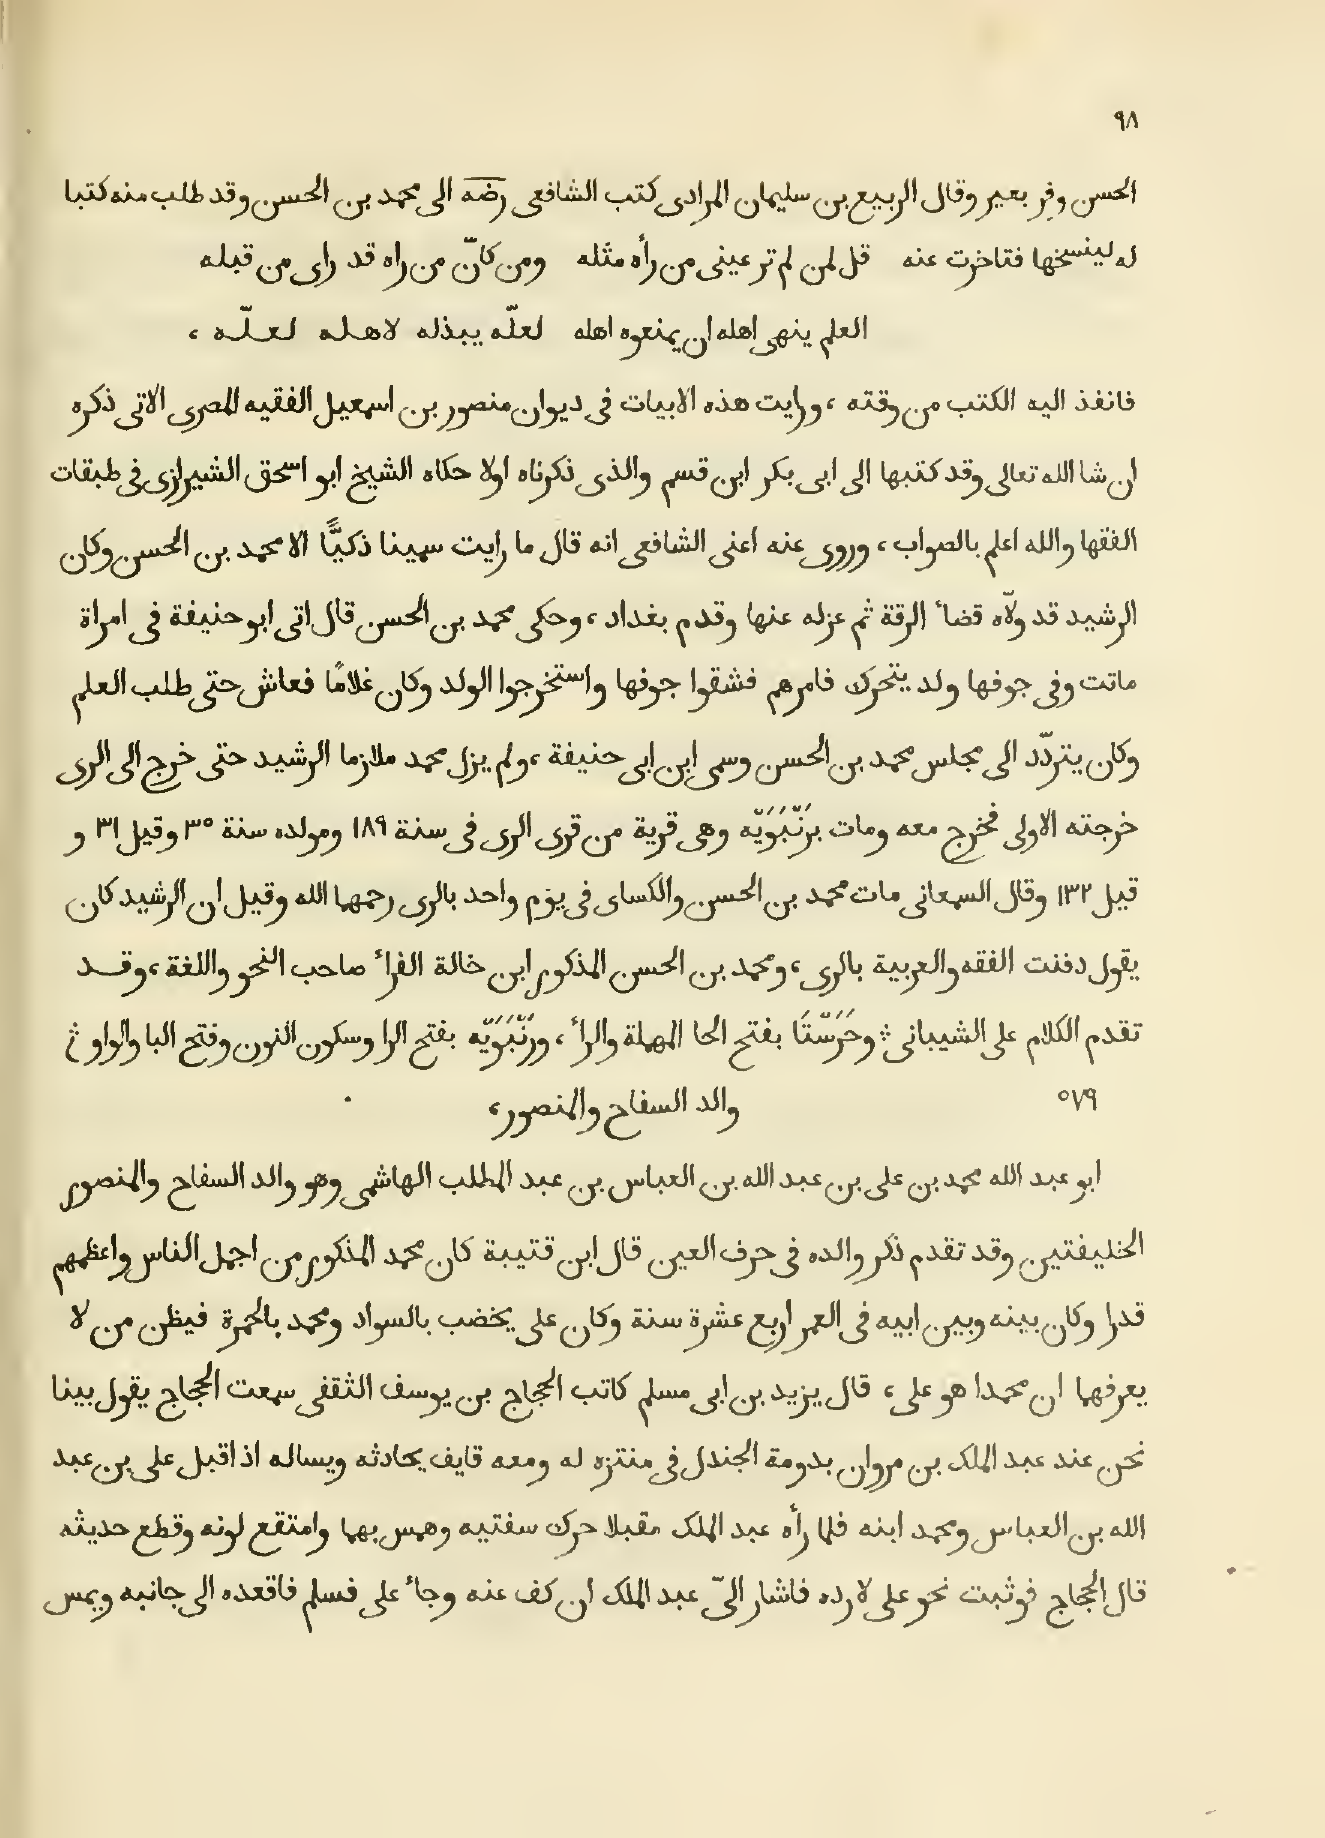 ٩٨
الحسن وقر بعير وقال الربيع بن سليمان المرادى كتب الشافعى رضه الى محمد بن الحسن وقد طلب منه كتبا
له لينسخها فتاخرت عنه قل لمن لم تر عينى من رأه مثله ومن كانّ من راه قد راى من قبله
العلم ينهى اهله ان يمنعوه اهله لعلّه يبذله لاهله لعلّه ،
فانفذ اليه الكتب من وقته ، ورايت هذه الابيات فى ديوان منصور بن اسمعيل الفقيه المصرى الاتى ذكره
ان شا الله تعالى وقد كتبها الى ابى بكر ابن قسم والذى ذكرناه اولا حكاه الشيخ ابو اسحق الشيرازى فى طبقات
الفقها والله اعلم بالصواب ، وروى عنه اعنى الشافعى انه قال ما رايت سمينا ذكيًّا الا محمد بن الحسن وكان
الرشيد قد ولّاه قضاء الرقة ثم عزله عنها وقدم بغداد ، وحكى محمد بن الحسن قال اتى ابو حنيفة فى امراة
ماتت وفى جوفها ولد يتحرك فامرهم فشقوا جوفها واستخرجوا الولد وكان غلامًا فعاش حتى طلب العلم
وكان يتردّد الى مجلس محمد بن الحسن وسمى ابن ابى حنيفة ، ولم يزل محمد ملازما الرشيد حتى خرج الى الرى
خرجته الاولى فخرج معه ومات برَنْبَوَيْه وهى قرية من قرى الرى فى سنة ١٨٩ ومولده سنة ٣٥ وقيل ٣١ و
قيل ١٣٢ وقال السمعانى مات محمد بن الحسن والكساى فى يوم واحد بالرى رحمهما الله وقيل ان الرشيد كان
يقول دفنت الفقه والعربية بالرى ، ومحمد بن الحسن المذكور ابن خالة الفراء صاحب النحو واللغة ، وقد
تقدم الكلام على الشيبانى ؞ وحَرَسْتَا بفتح الحا المهملة والراء ، ورَنْبَوَيْه بفتح الرا وسكون النون وفتح البا والواو ؞
٥٧٩ والد السفاح والمنصور ،
ابو عبد الله محمد بن على بن عبد الله بن العباس بن عبد المطلب الهاشمى وهو والد السفاح والمنصور
الخليفتين وقد تقدم ذكر والده فى حرف العين قال ابن قتيبة كان محمد المذكور من اجمل الناس واعظمهم
قدرا وكان بينه وبين ابيه فى العمر اربع عشرة سنة وكان على يخضب بالسواد ومحمد بالحمرة فيظن من لا
يعرفهما ان محمدا هو على ، قال يزيد بن ابى مسلم كاتب الحجاج بن يوسف الثقفى سمعت الحجاج يقول بينا
نحن عند عبد الملك بن مروان بدومة الجندل فى منتزه له ومعه قايف يحادثه ويساله اذ اقبل على بن عبد
الله بن العباس ومحمد ابنه فلما رأه عبد الملك مقبلا حرك سفتيه وهمس بهما وامتقع لونه وقطع حديثه
قال الحجاج فوثبت نحو على لارده فاشار الىّ عبد الملك ان كف عنه وجاء على فسلم فاقعده الى جانبه ويمس